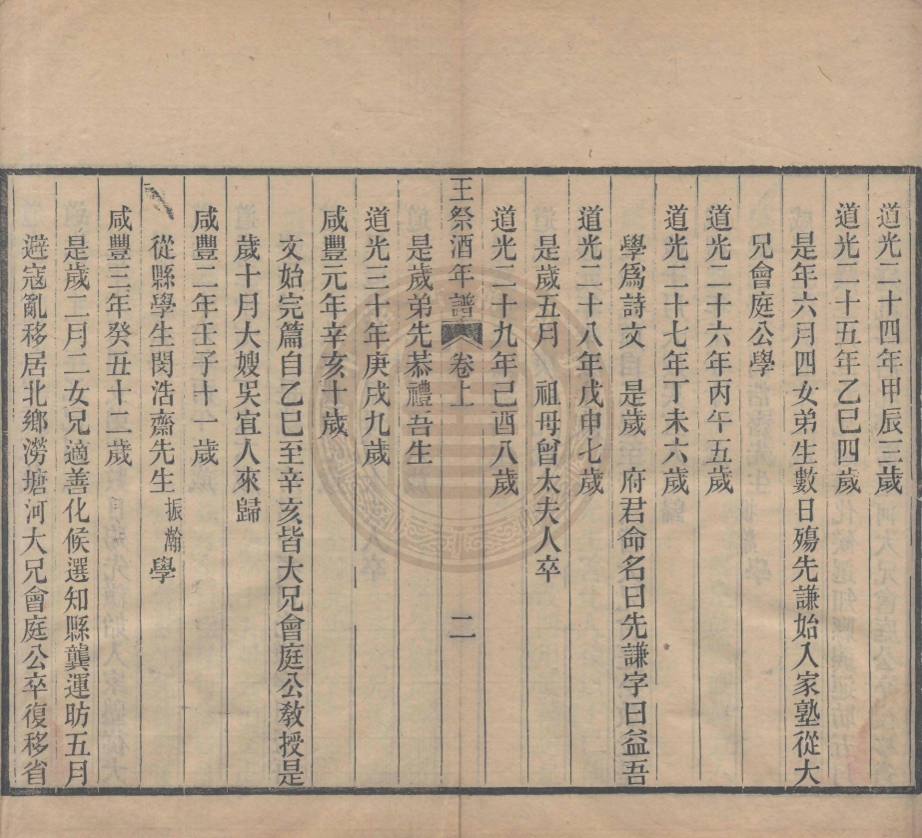 道光二十四年甲辰三歲
道光二十五年乙巳四歲
是年六月四女弟生數日殤先謙始入家塾從大
兄會庭公學
道光二十六年丙午五歲
道光二十七年丁未六歲
學爲詩文　是歲　府君命名曰先謙字曰益吾
道光二十八年戊申七歲
是歲五月　祖母曾太夫人卒
道光二十九年己酉八歲
王祭酒年譜　卷上　二
是歲弟先恭禮吾生
道光三十年庚戌九歲
咸豐元年辛亥十歲
文始完篇自乙巳至辛亥皆大兄會庭公敎授是
歲十月大嫂吳宜人來歸
咸豐二年壬子十一歲
從縣學生閔浩齋先生振瀚學
咸豐三年癸丑十二歲
是歲二月二女兄適善化候選知縣龔運昉五月
避寇亂移居北鄉澇塘河大兄會庭公卒復移省